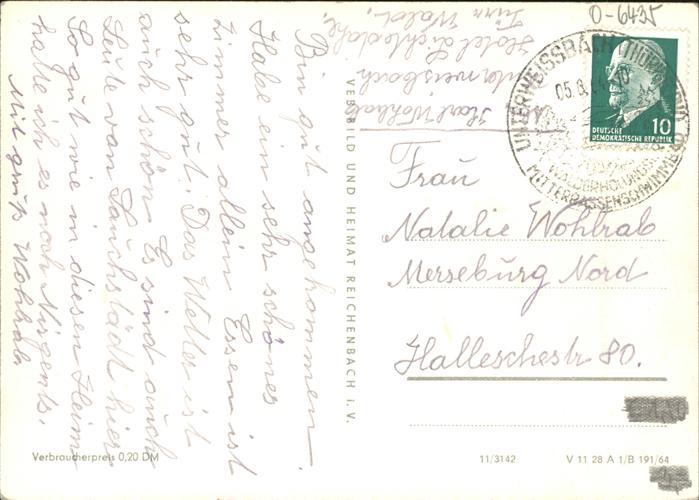 O-6435
Karl Wohlrab
Unterweisbach
Hotel Lichtedahl
Thür Wald.
UNTERWEISSBACH (THÜR
05.8.
WALDERHOLUNGS
MITTERRASSENSCHWIMM
DEUTSCHE
DEMOKRATISCHE REPUBLIK
10
Bin gut angekommen.
Habe ein sehr schönes
Zimmer allein Essen ist
sehr gut. Das Wetter ist
auch schön Es sind auch
Leute von Lauchstädt hier
So gut wie in diesen Heim
hatte ich es noch Nirgents.
Mit gruß Wohlrab
VEB BILD UND HEIMAT REICHENBACH i.V.
Frau
Natalie Wohlrab
Merseburg Nord
Halleschestr 80.
Verbraucherpreis 0,20 DM
11/3142
V 11 28 A 1/B 191/64